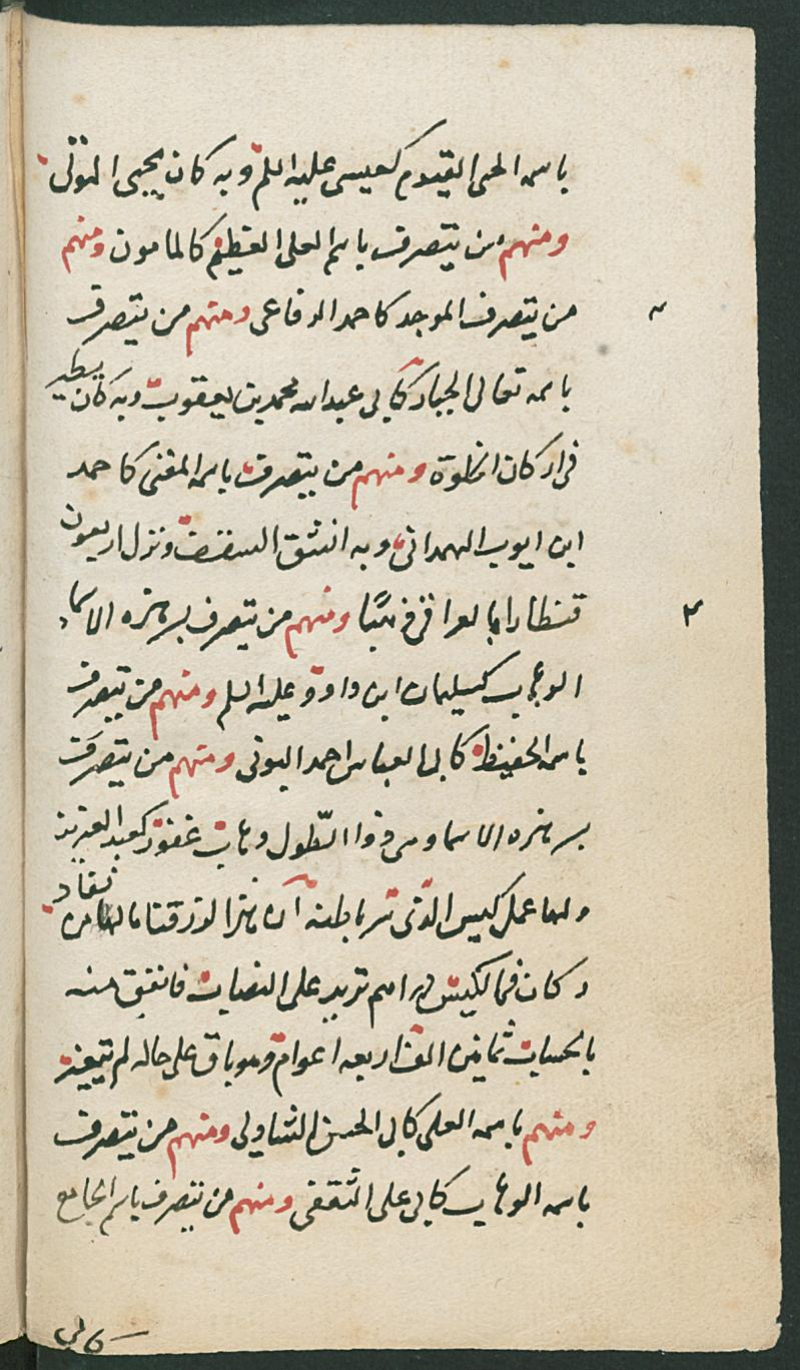 باسمه الحى القيوم كعيسى عليه السلم وبه كان يحيى الموتى
ومنهم من يتصرف باسم العلى العظيم كالمامون ومنهم
من يتصرف الموجد كاحمد الرفاعى ومنهم من يتصرف
باسمه تعالى الجبار كابى عبد الله محمد بن يعقوب وبه كان يطير
فى اركان الخلوة ومنهم من يتصرف باسمه المغنى كاحمد
ابن ايوب الهمدانى وبه انشق السقف ونزل اربعون
قنطارا بالعراقى ذهبًا ومنهم من يتصرف بهذه الاسماء
الوهاب كسليمان ابن داوود عليه السلم ومنهم من يتصرف
باسمه الحفيظ كابى العباس احمد البونى ومنهم من يتصرف
بهذه الاسما وهى ذوا الطول وهاب غفور كعبد العزيز
ولما عمل كيس الذى باطنه ان هذا لرزقنا ماله من نفاد
وكان فى الكيس دراهم تزيد على النصاب فانفق منه
بالحساب ثمانين الف اربعه اعوام وهو باق على حاله لم يتغير
ومنهم باسمه العلى كابى الحسن الشاولى ومنهم من يتصرف
باسمه الوهاب كابى على الثقفى ومنهم من يتصرف باسم الجامع
كابى